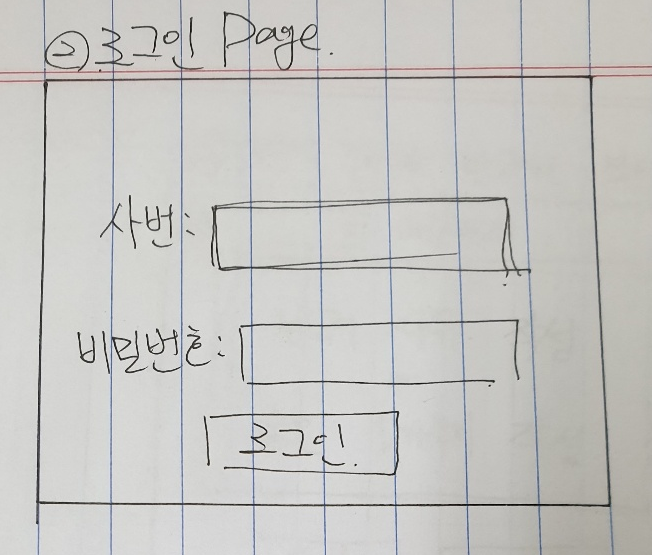 ② 로그인 Page.
사번:
비밀번호:
로그인